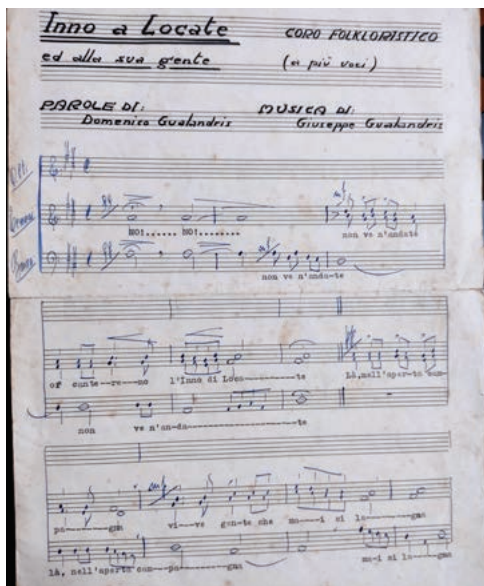 Inno a Locate CORO FOLKLORISTICO
ed alla sua gente (a più voci)
PAROLE DI: MUSICA DI:
Domenico Gualandris Giuseppe Gualandris
NO!...... NO!........ non ve n'andate
non ve n'anda-te
of cante--re--mo l'Inno di Loca---------te Là,nell'aper-ta cam-
non ve n'an-da---------------------te
pa-------gna vi--ve gen-te che ma---i si la----gna
là, nell'aperta cam--pa----gna ma-i si la---gna